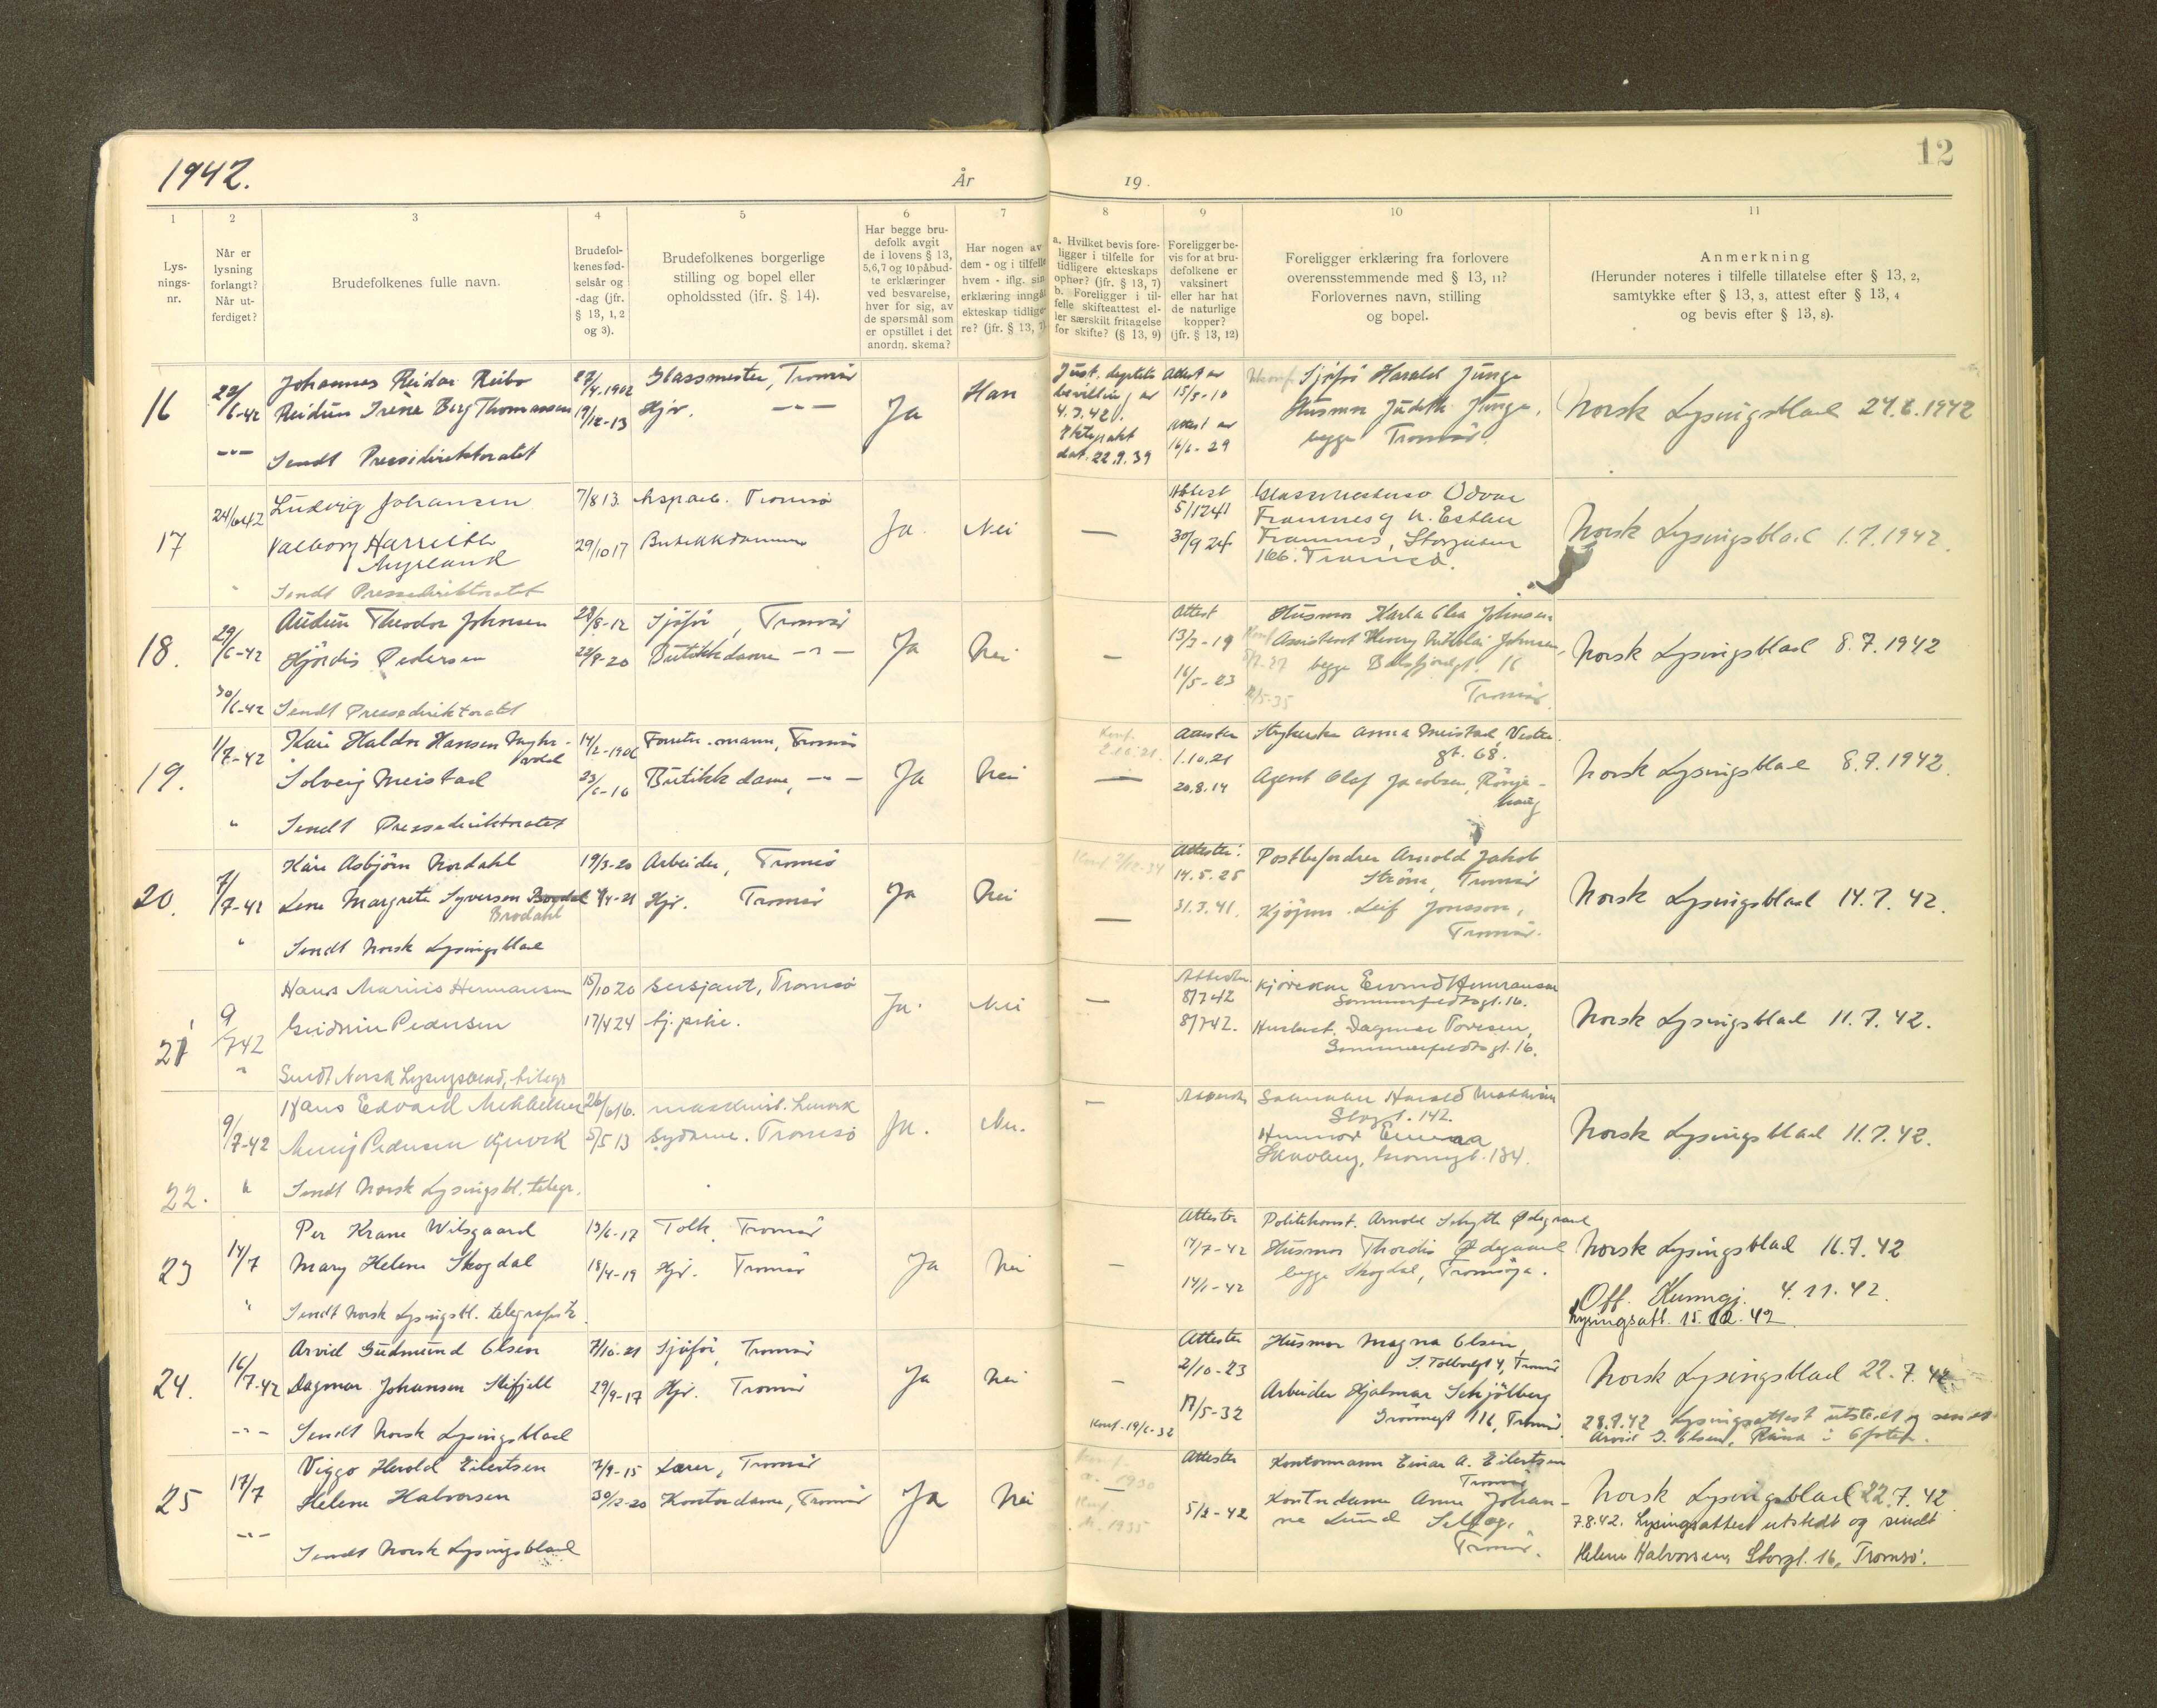 1942.
År
19 .
12
1
2
3
4
5
6
7
8
9
10
11
Lys-
nings-
nr.
Når er
lysning
forlangt?
Når ut-
ferdiget?
Brudefolkenes fulle navn.
Brudefol-
kenes fød-
selsår og
-dag (jfr.
§ 13, 1, 2
og 3).
Brudefolkenes borgerlige
stilling og bopel eller
opholdssted (jfr. § 14).
Har begge bru-
defolk avgit
de i lovens § 13,
5, 6, 7 og 10 påbud-
te erklæringer
ved besvarelse,
hver for sig, av
de spørsmål som
er opstillet i det
anordn. skema?
Har nogen av
dem - og i tilfelle
hvem - iflg. sin
erklæring inngåt
ekteskap tidlige-
re? (jfr. § 13, 7).
a. Hvilket bevis fore-
ligger i tilfelle for
tidligere ekteskaps
ophør? (jfr. § 13, 7)
b. Foreligger i til-
felle skifteattest el-
ler særskilt fritagelse
for skifte? (§ 13, 9)
Foreligger be-
vis for at bru-
defolkene er
vaksinert
eller har hat
de naturlige
kopper?
(jfr. § 13, 12)
Foreligger erklæring fra forlovere
overensstemmende med § 13, 11?
Forlovernes navn, stilling
og bopel.
Anmerkning
(Herunder noteres i tilfelle tillatelse efter § 13, 2,
samtykke efter § 13, 3, attest efter § 13, 4
og bevis efter § 13, 8).
16
Johannes Reidar
27/4.1902
Glassmester, Tromsø
Reidun Irène Berg Thomassen
19/12-13
Hjv. -"-
Ja
Han
-"-
Sendt Pressedirektoratet
4.3.42.
Ektepakt
dat. 22.9.39
Attest av
15/5-10
Attest av
16/6-29
Sjåfør Harald Junge
Husmor Judith Junge,
begge Tromsø.
Norsk Lysingsblad 24.6.1942
17
24/6 42
Ludvig Johansen
7/8 13
Tromsø
Valborg Harriette
Myrland
29/10 17
Butikkdamme
Ja.
Nei
—
Attest
5/1241
30/9 24
Framnes, Storgaten
166. Tromsø.
Norsk Lysingsblad 1.7.1942.
Sendt Pressedirektoratet
18.
29/6-42
Audun Theodor Johnsen
28/8-12
Sjåfør, Tromsø
Hjördis Pedersen
24/8-20
Butikkdame -"-
Ja
Nei
—
Attest
13/7-19
16/5-23
Husmor Karla Elea Johnsen
Assistent Henry Nikolai Johnsen,
begge Balsfjordgt. 16
Tromsø
Norsk Lysingsblad 8.7.1942
30/6-42
Sendt Pressedirektoratet
19.
1/7-42
Kåre Haldor Hansen
14/2-1906
Tromsø
Solveig Meistad
23/6-16
Butikkdame, -"-
Ja
Nei
—
Konf.
2.10.21.
Attester
1.10.21
20.8.14
Strykerske Anna Meistad Vestre
gt. 68.
Agent Olaf Jacobsen,
Norsk Lysingsblad 8.7.1942.
"
Sendt Pressedirektoratet
20.
7/7-42
Kåre Asbjörn Nordahl
19/3-20
Arbeider, Tromsø
Lene Margrete Syversen
Brodahl
4/4-21
Hjv. Tromsø
Ja
Nei
—
Attester:
14.5.25
31.3.41.
Postbefordrer Arnold Jakob
Ström, Tromsø
Leif Jonsson,
Tromsø.
Norsk Lysingsblad 14.7.42.
"
Sendt Norsk Lysingsblad
21
9/7 42
Hans Marius Hermansen
15/10 20
Sersjant, Tromsø
Gudrun Pedersen
17/4 24
Tj. pike.
Ja.
Nei
—
Attester
8/7 42
8/7 42.
Sommerfeldtsgt. 16.
Sommerfeldtsgt. 16.
Norsk Lysingsblad 11.7.42.
Sendt Norsk Lysingsblad, telegr
22.
9/7-42
Hans Edvard
26/6 16.
5/5 13
Sydame. Tromsø
Ja.
Nei.
—
Attester
Storgt. 142.
Husmor
Norsk Lysingsblad 11.7.42.
"
Sendt Norsk Lysingsbl. telegr.
23
14/7
Per Krane Wilsgaard
13/6-17
Tolk, Tromsø
Mary Helene Skogdal
18/4-19
Hjv. Tromsø
Ja
Nei
—
Attester
14/7-42
14/1-42
Politikonst. Arnold Schytte Ødegaard
Husmor Thordis Ødegaard
begge Skogdal, Tromsøya.
Norsk Lysingsblad 16.7.42
Off. Kunngj. 4.11.42.
Lysingsatt. 15.12.42.
"
Sendt Norsk Lysingsbl. telegrafisk
24.
16/7-42
Arvid Gudmund Olsen
7/10-21
Sjåfør, Tromsø
Dagmar Johansen Slifjell
29/9-17
Hjv. Tromsø
Ja
Nei
—
Konf. 19/6-32
Attester
2/10-23
17/5-32
Husmor Magna Olsen,
S. Tolbodgt 4, Tromsø
Arbeider Hjalmar Schjölberg
Grönnegt 116, Tromsø.
Norsk Lysingsblad 22.7.42
28.9.42 Lysingsattest utstedt og sendt
Arvid G. Olsen,
-"-
Sendt Norsk Lysingsblad
25
17/7
Viggo Herold Eilertsen
7/9-15
Lærer, Tromsø
Helene Halvorsen
30/12-20
Kontordame, Tromsø
Ja
Nei
—
Konf.
1930
Konf.
1935
Attester
5/2-42
Kontormann Einar A. Eilertsen
Tromsø
Kontordame Anne Johan-
ne Lund
Tromsø.
Norsk Lysingsblad 22.7.42
7.8.42. Lysingsattest utstedt og sendt
Helene Halvorsen, Storgt. 16, Tromsø.
-"-
Sendt Norsk Lysingsblad